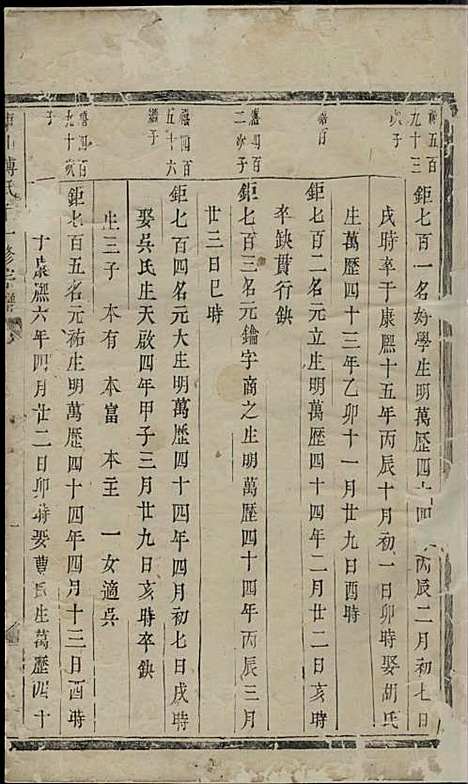 五百
九十三
次子
鉅七百一名好學生明萬歷四十四丙辰二月初七日
戌時卒于康熈十五年丙辰十月初一日卯時娶胡氏
生萬歷四十三年乙卯十一月廿九日酉時
鉅七百二名元立生明萬歷四十四年二月廿二日亥時
卒缺貫行鈌
四百
二次子
鉅七百三名元鑰字商之生明萬歷四十四年丙辰三月
廿三日巳時
四百
五十六
子
鉅七百四名元大生明萬歷四十四年四月初七日戌時
娶吳氏生天啟四年甲子三月廿九日亥時卒鈌
生三子 本有 本富 本主 一女適吳
四百
九十次
子
鉅七百五名元祐生明萬歷四十四年四月十三日酉時
于康熈六年四月廿二日卯時娶曹氏生萬歷四十
傅氏
修宗譜